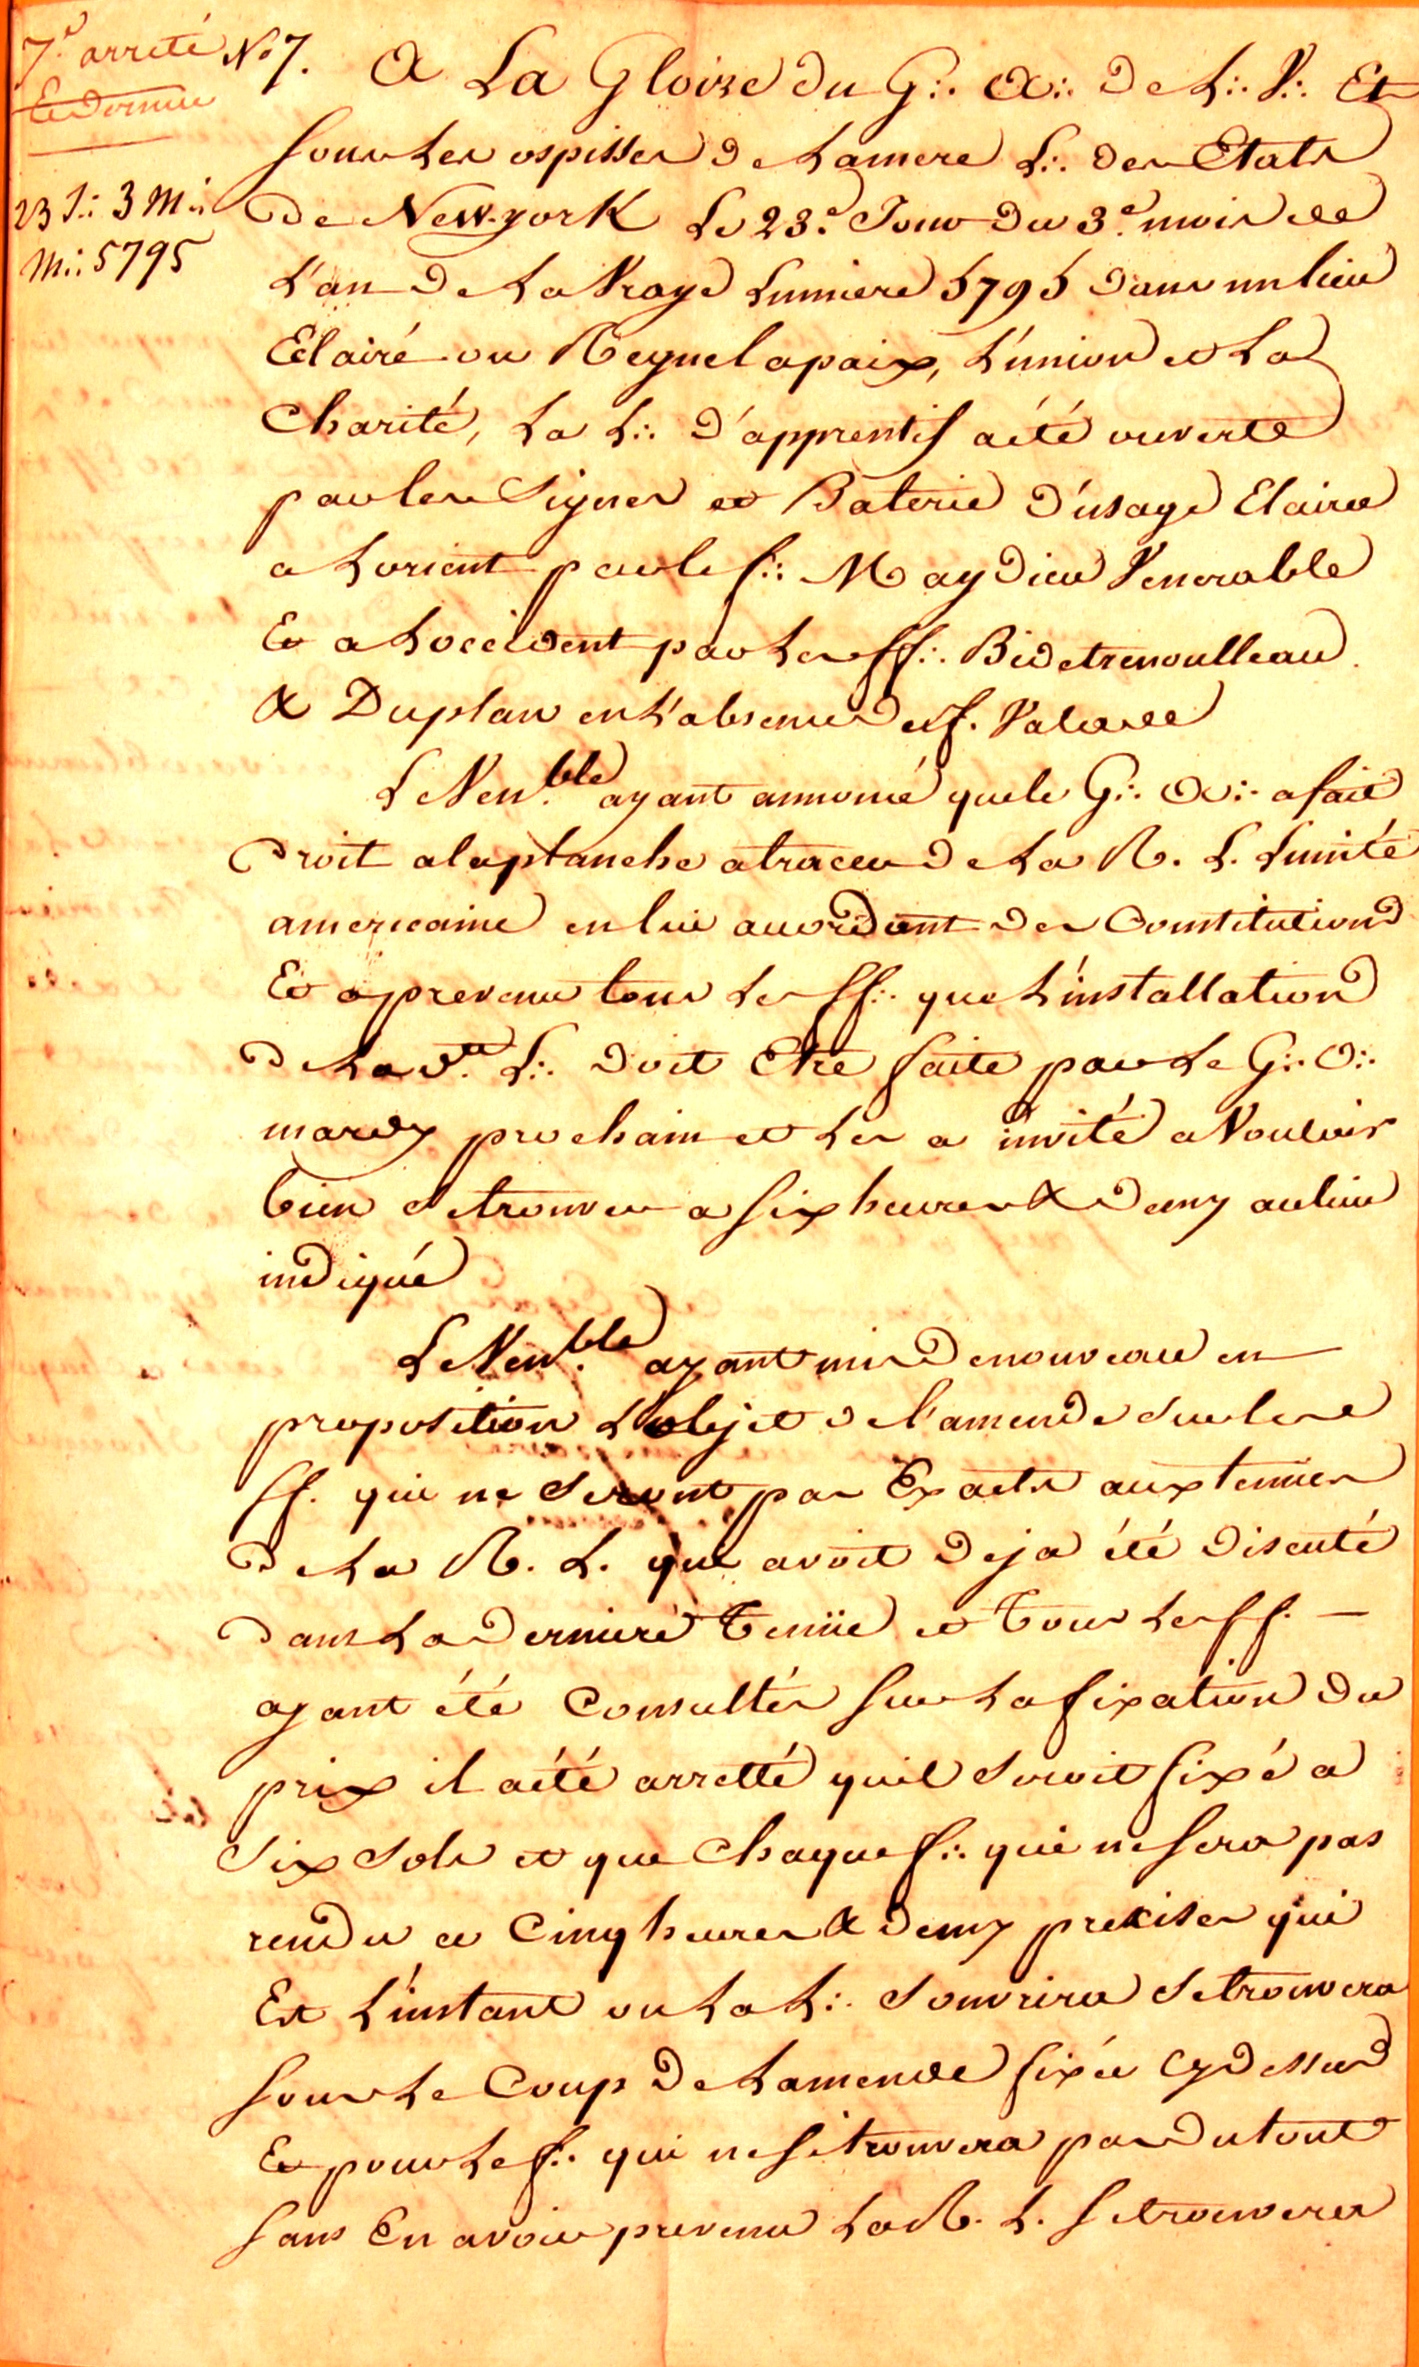 7.e arreté
Et dernier
23 J∴ 3 M∴
M∴ 5795
No 7. A La Gloire du G∴ A∴ de L∴ V∴ Et
Sous les ospisses de La mere L∴ des Etats
de New-york Le 23.e Jour du 3.e mois de
L'an de La Vraye Lumiere 5795 dans un lieu
Eclairé ou Regne la paix, L'union et La
Charité, La L∴ d'apprentif a été ouverte
par les Signes et Baterie d'usage Elairee
a Lorient par le f∴ Maydieu Venerable
Et a Loccident par Les ff∴ Bidetrenoulleau
& Duplan en L'absence du f.
Le Ven.ble ayant annoncé que le G∴ O∴ a fait
droit a la planche a tracer de La R. L. Lunité
americaine en lui accordant des Constitutions
Et a prevenu tous Les ff∴ que L'installation
de La d.te L∴ doit Etre faite par Le G∴ O∴
mardy prochain et Les a invité a Vouloir
bien se trouver a Six heures & demy au lieu
indiqué
Le Ven.ble ayant mis de nouveau en
proposition L'objet de l'amende sur les
ff. qui ne seront pas Exacts aux tenües
de La R. L. qui avoit deja été discuté
dans La derniere Tenüe et Tous Les ff. —
ayant été Consultés Sur La fixation du
prix il a été arretté quil seroit fixé a
Six Sols et que Chaque f∴ qui ne Sera pas
rendu a Cinq heures & demy precises qui
Est L'instant ou La L∴ souvrira se trouvera
Sous Le Coup de Lamende fixée Cy dessus
Et pour Le f∴ qui ne Si trouvera pas du tout
Sans En avoir prevenu La R. L. Se trouvera